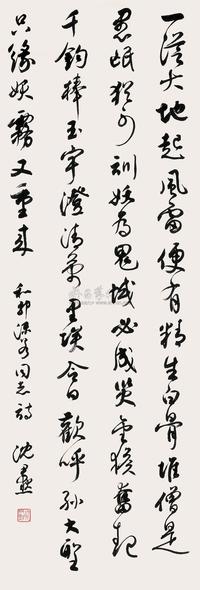 一從大地起風雷便有精生白骨堆僧是
愚氓猶可訓妖為鬼蜮必成災金猴奮起
千鈞棒玉宇澄清萬里埃今日歡呼孫大聖
只緣妖霧又重來 和郭沫若同志詩 沈